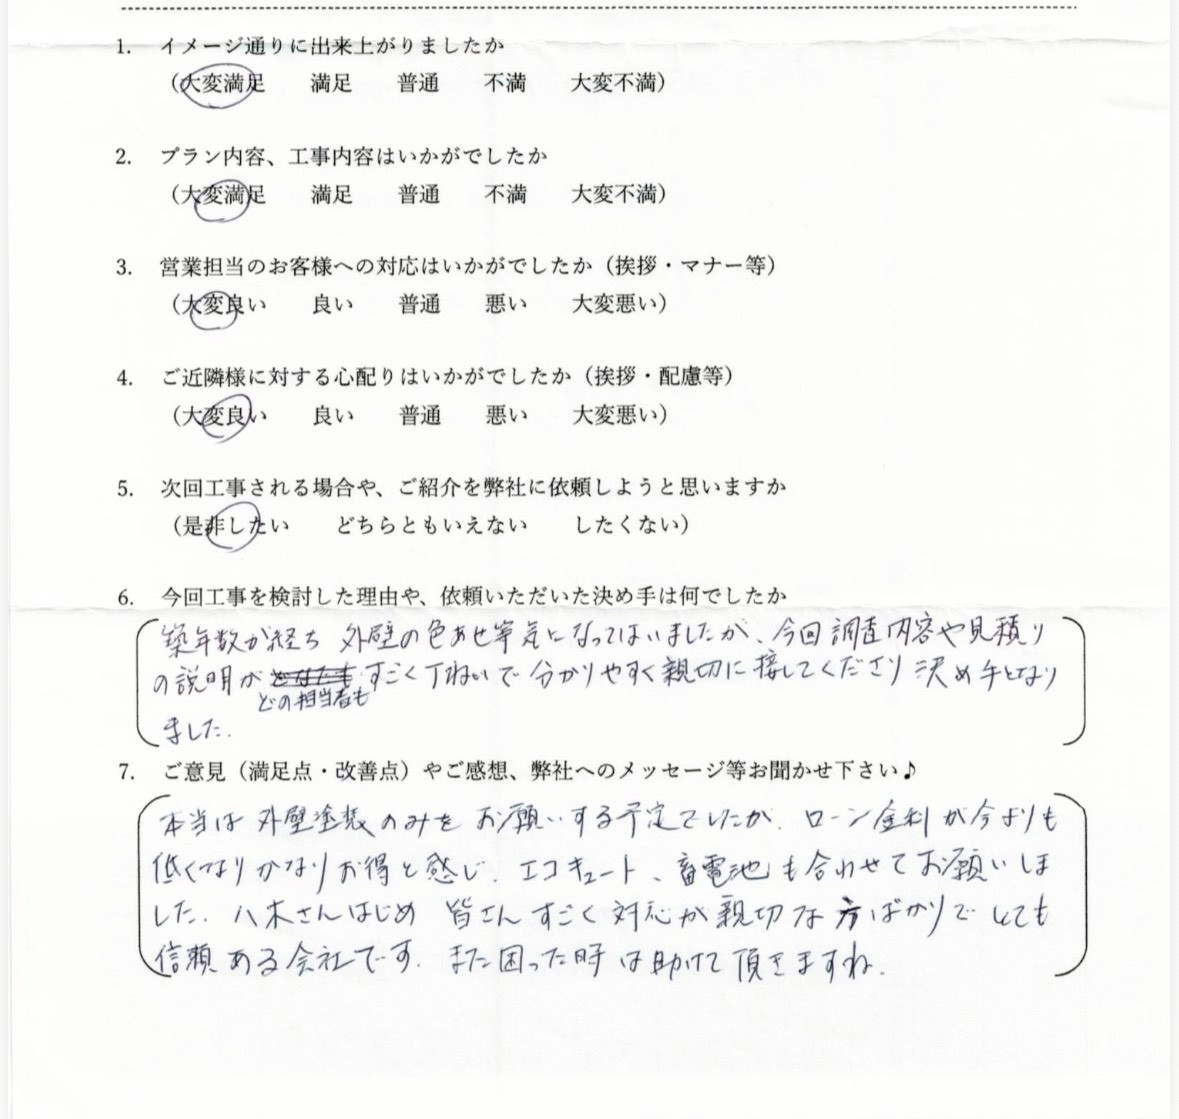 1. イメージ通りに出来上がりましたか
（大変満足 満足 普通 不満 大変不満）
2. プラン内容、工事内容はいかがでしたか
（大変満足 満足 普通 不満 大変不満）
3. 営業担当のお客様への対応はいかがでしたか（挨拶・マナー等）
（大変良い 良い 普通 悪い 大変悪い）
4. ご近隣様に対する心配りはいかがでしたか（挨拶・配慮等）
（大変良い 良い 普通 悪い 大変悪い）
5. 次回工事される場合や、ご紹介を弊社に依頼しようと思いますか
（是非したい どちらともいえない したくない）
6. 今回工事を検討した理由や、依頼いただいた決め手は何でしたか
築年数が経ち 外壁の色あせ等気になってはいましたが、今回調査内容や見積り
の説明が すごく丁ねいで分かりやすく親切に接してくださり決め手となり
どの担当者も
ました.
7. ご意見（満足点・改善点）やご感想、弊社へのメッセージ等お聞かせ下さい♪
本当は外壁塗装のみをお願いする予定でしたが、ローン金利が今よりも
低くなりかなりお得と感じ、エコキュート、蓄電池も合わせてお願いしま
した. 八木さんはじめ 皆さんすごく対応が親切な方ばかりでとても
信頼ある会社です. また困った時は助けて頂きますね.